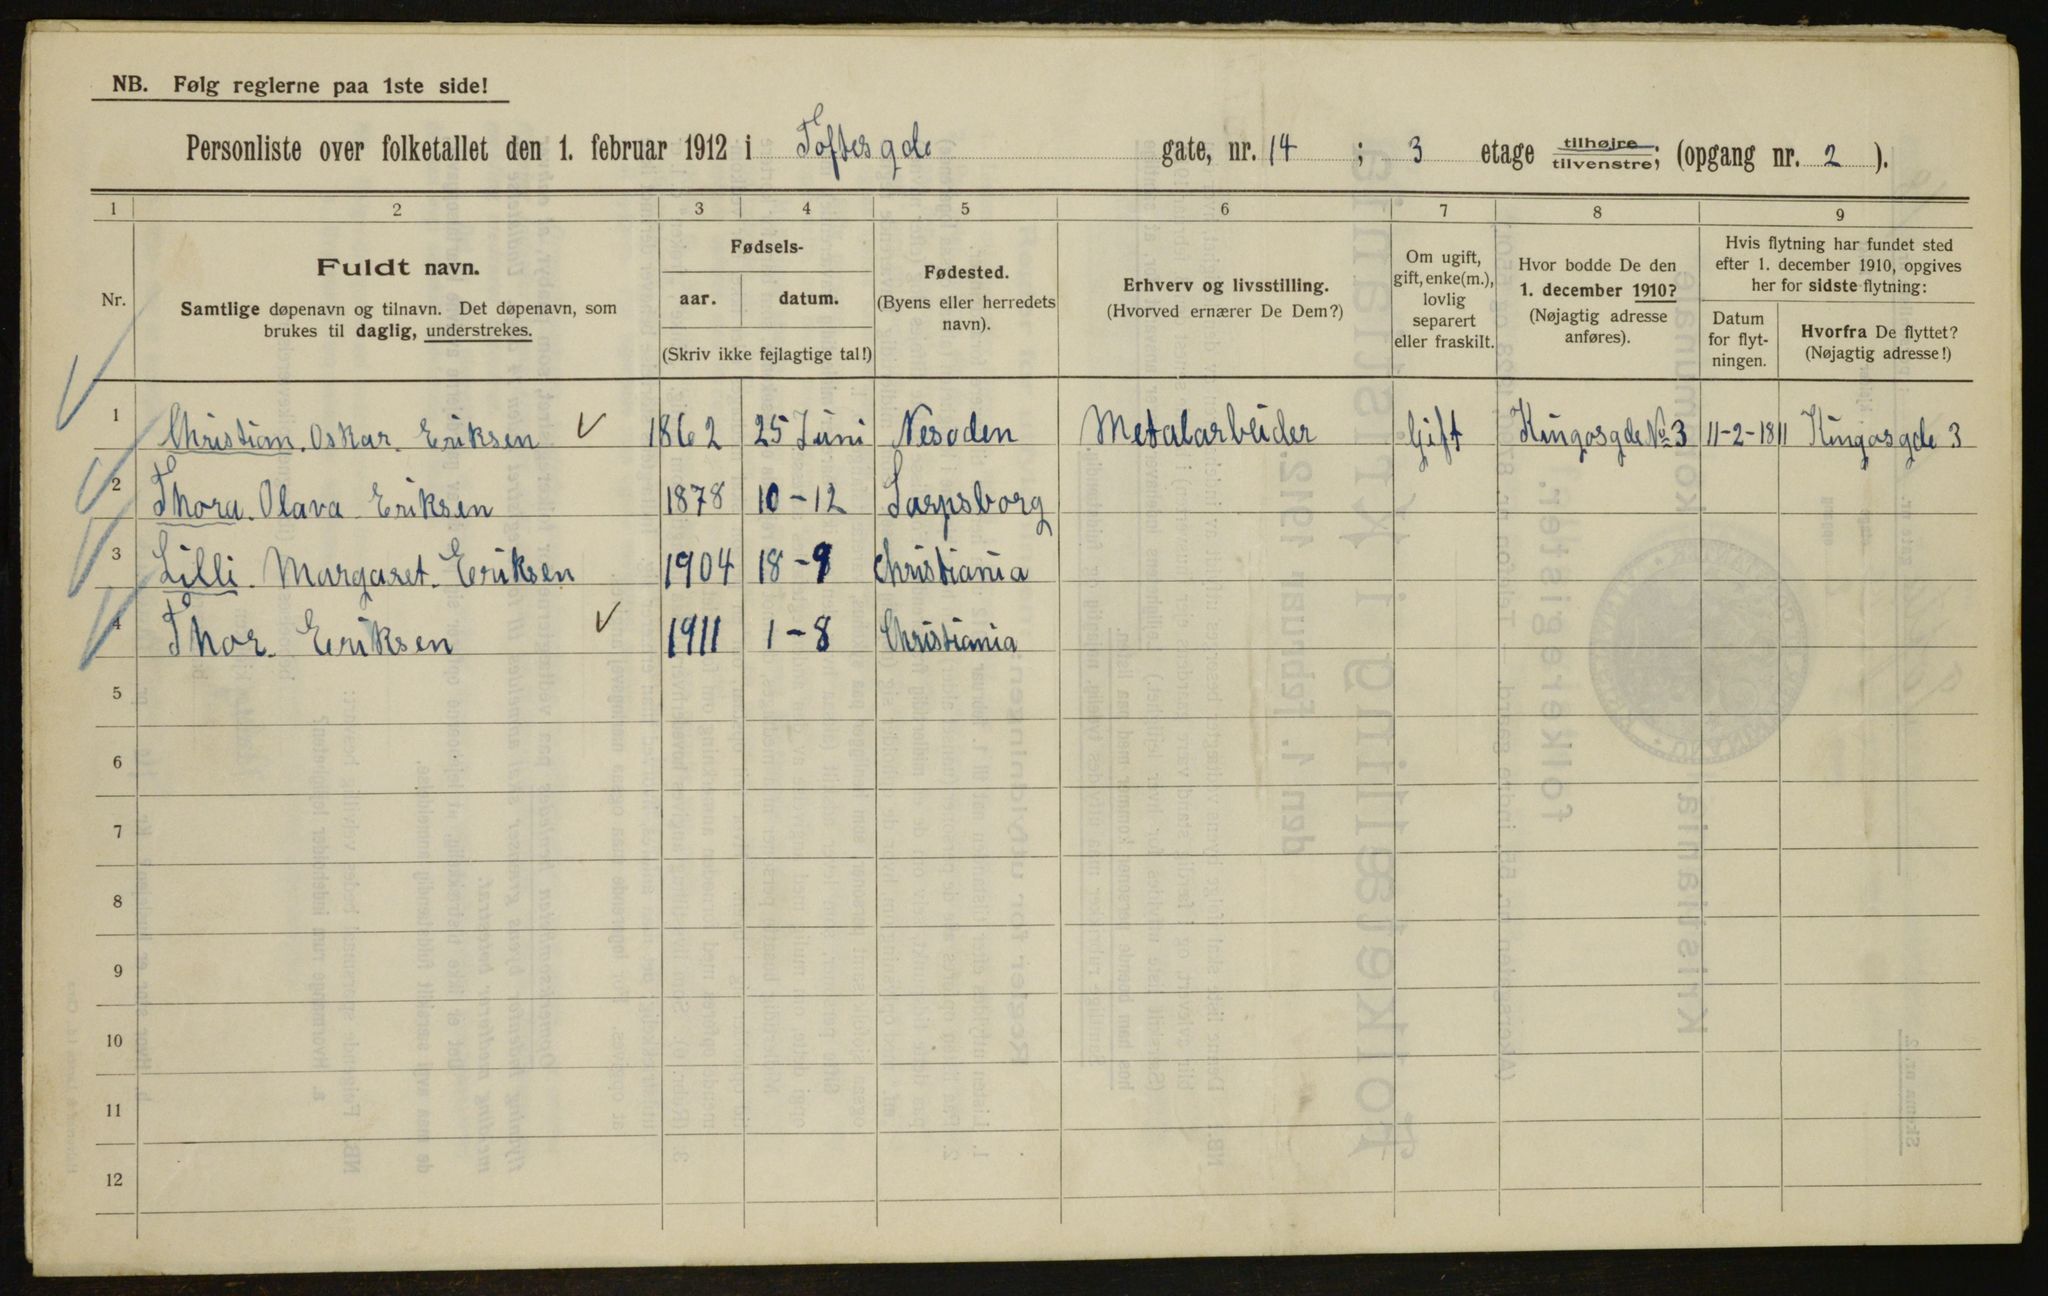 NB. Følg reglerne paa 1ste side!
Personliste over folketallet den 1. februar 1912 i Toftesgde gate, nr. 14 ; 3 etage tilhøire. tilvenstre, (opgang nr. 2 ).
1 2 3 4 5 6 7 8 9
Nr.
Fuldt navn.
Samtlige døpenavn og tilnavn. Det døpenavn, som
brukes til daglig, understrekes.
Fødsels-
aar. datum.
(Skriv ikke fejlagtige tal!)
Fødested.
(Byens eller herredets
navn).
Erhverv og livsstilling.
(Hvorved ernærer De Dem?)
Om ugift,
gift, enke(m.),
lovlig
separert
eller fraskilt.
Hvor bodde De den
1. december 1910?
(Nøjagtig adresse
anføres).
Hvis flytning har fundet sted
efter 1. december 1910, opgives
her for sidste flytning:
Datum
for flyt-
ningen.
Hvorfra De flyttet?
(Nøjagtig adresse!)
1 Christian. Oskar. Eriksen 1862 25 Juni Nesodden Metalarbeider Gift Kingosgde No 3 11-2-1811 Kingosgde 3
2 Thora. Olava Eriksen 1878 10-12 Sarpsborg
3 Lilli. Margaret. Eriksen 1904 18-9 Christiania
4 Thor. Eriksen 1911 1-8 Christiania
5
6
7
8
9
10
11
12